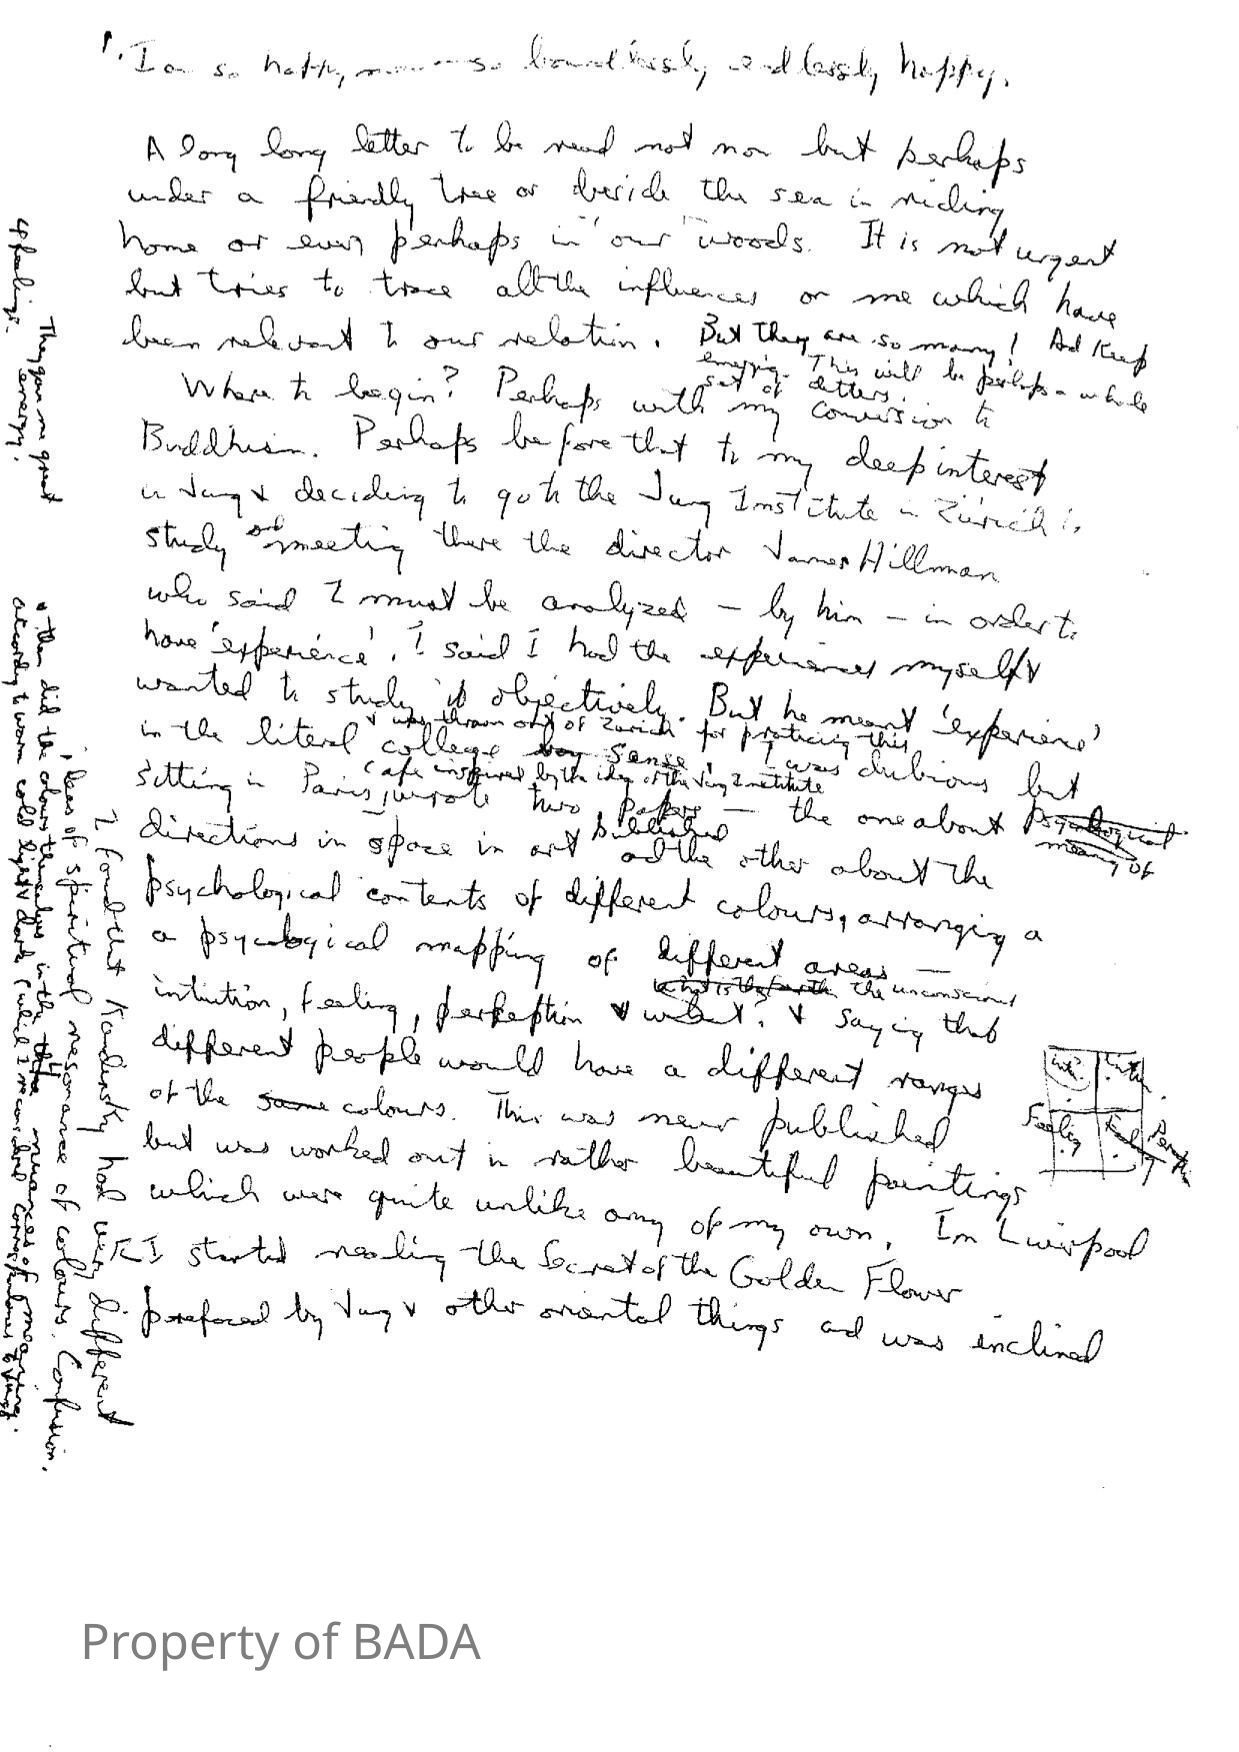 1. I am so happy, so boundlessly endlessly happy.
A long long letter to be read not now but perhaps
under a friendly tree or beside the sea in riding
home or even perhaps in "our" woods. It is not urgent
but tries to trace all the influences on me which have
been relevant to our relation. But they are so many! And keep
emerging. This will be perhaps a whole
set of letters.
Where to begin? Perhaps with my conversion to
Buddhism. Perhaps before that to my deep interest
in Jung & deciding to go to the Jung Institute in Zürich to
study and meeting there the director James Hillman
who said I must be analyzed – by him – in order to
have 'experience'. I said I had the experiences myself &
wanted to study it objectively. But he meant 'experience'
& was thrown out of Zurich for practicing this
in the literal college sense. I was dubious but
Cafe inspired by the idea of the Jung Institute
sitting in Paris, wrote two papers – the one about psychological
meaning of
published
directions in space in art and the other about the
psychological contents of different colours, arranging a
a psycological mapping of different areas –
what is the fourth the unconscious
intiution, feeling, perkeption & what? & saying that
different people would have a different ranges
of the same colours. This was never published
but was worked out in rather beautiful paintings
which were quite unlike any of my own. In Liverpool
I started reading the Secret of the Golden Flower
prefaced by Jung & other oriental things and was inclined
Feeling
Feeling
They give me great
energy.
4 feelings.
I found that Kandinsky had very different
ideas of spiritual resonance of colours. Confusion.
then did the colours themselves in the 4 nuances of meaning
according to warm cold light & dark (which I recorded corresponding to Jung.
Property of BADA